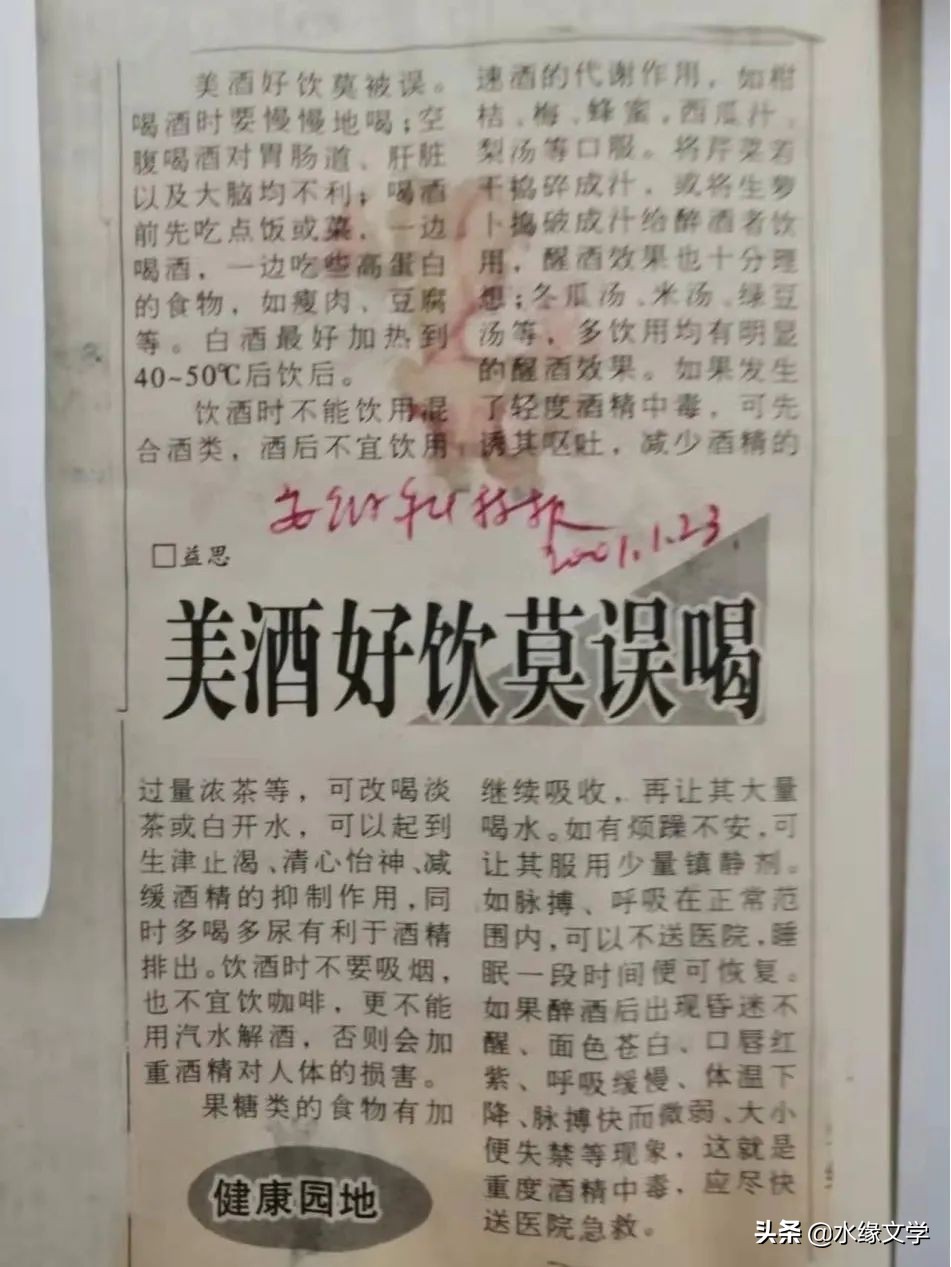 美酒好饮莫被误。
喝酒时要慢慢地喝；空
腹喝酒对胃肠道、肝脏
以及大脑均不利；喝酒
前先吃点饭或菜，一边
喝酒，一边吃些高蛋白
的食物，如瘦肉、豆腐
等。白酒最好加热到
40~50℃后饮后。
饮酒时不能饮用混
合酒类，酒后不宜饮用
安徽科技报
2001.1.23.
□益思
美酒好饮莫误喝
过量浓茶等，可改喝淡
茶或白开水，可以起到
生津止渴、清心怡神、减
缓酒精的抑制作用，同
时多喝多尿有利于酒精
排出。饮酒时不要吸烟，
也不宜饮咖啡，更不能
用汽水解酒，否则会加
重酒精对人体的损害。
果糖类的食物有加
速酒的代谢作用，如柑
桔、梅、蜂蜜，西瓜汁、
梨汤等口服。将芹菜若
干捣碎成汁，或将生萝
卜捣破成汁给醉酒者饮
用，醒酒效果也十分理
想；冬瓜汤、米汤、绿豆
汤等，多饮用均有明显
的醒酒效果。如果发生
了轻度酒精中毒，可先
诱其呕吐，减少酒精的
继续吸收，再让其大量
喝水。如有烦躁不安，可
让其服用少量镇静剂。
如脉搏、呼吸在正常范
围内，可以不送医院，睡
眠一段时间便可恢复。
如果醉酒后出现昏迷不
醒、面色苍白、口唇红
紫、呼吸缓慢、体温下
降、脉搏快而微弱、大小
便失禁等现象，这就是
重度酒精中毒，应尽快
送医院急救。
健康园地
头条 @水缘文学